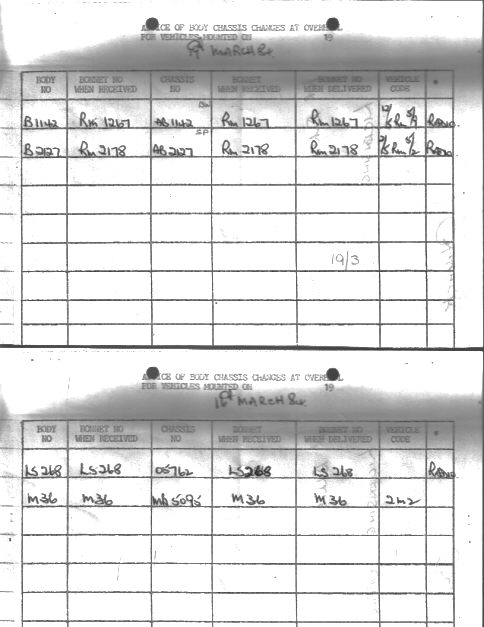 ADVICE OF BODY CHASSIS CHANGES AT OVERHAUL
FOR VEHICLES MOUNTED ON 19
MARCH 84
BODY NO BONNET NO WHEN RECEIVED CHASSIS NO BONNET WHEN RECEIVED BONNET NO WHEN DELIVERED VEHICLE CODE *
B1142 RM 1267 AB1142 RM 1267 RM 1267 RM RADIO
SP
B2127 RM 2178 AB2127 RM 2178 RM 2178 RM RADIO
19/3
ADVICE OF BODY CHASSIS CHANGES AT OVERHAUL
FOR VEHICLES MOUNTED ON 19
MARCH 84
BODY NO BONNET NO WHEN RECEIVED CHASSIS NO BONNET WHEN RECEIVED BONNET NO WHEN DELIVERED VEHICLE CODE *
LS268 LS268 05762 LS268 LS 268 RADIO
M36 M36 MA5095 M36 M36 2M2